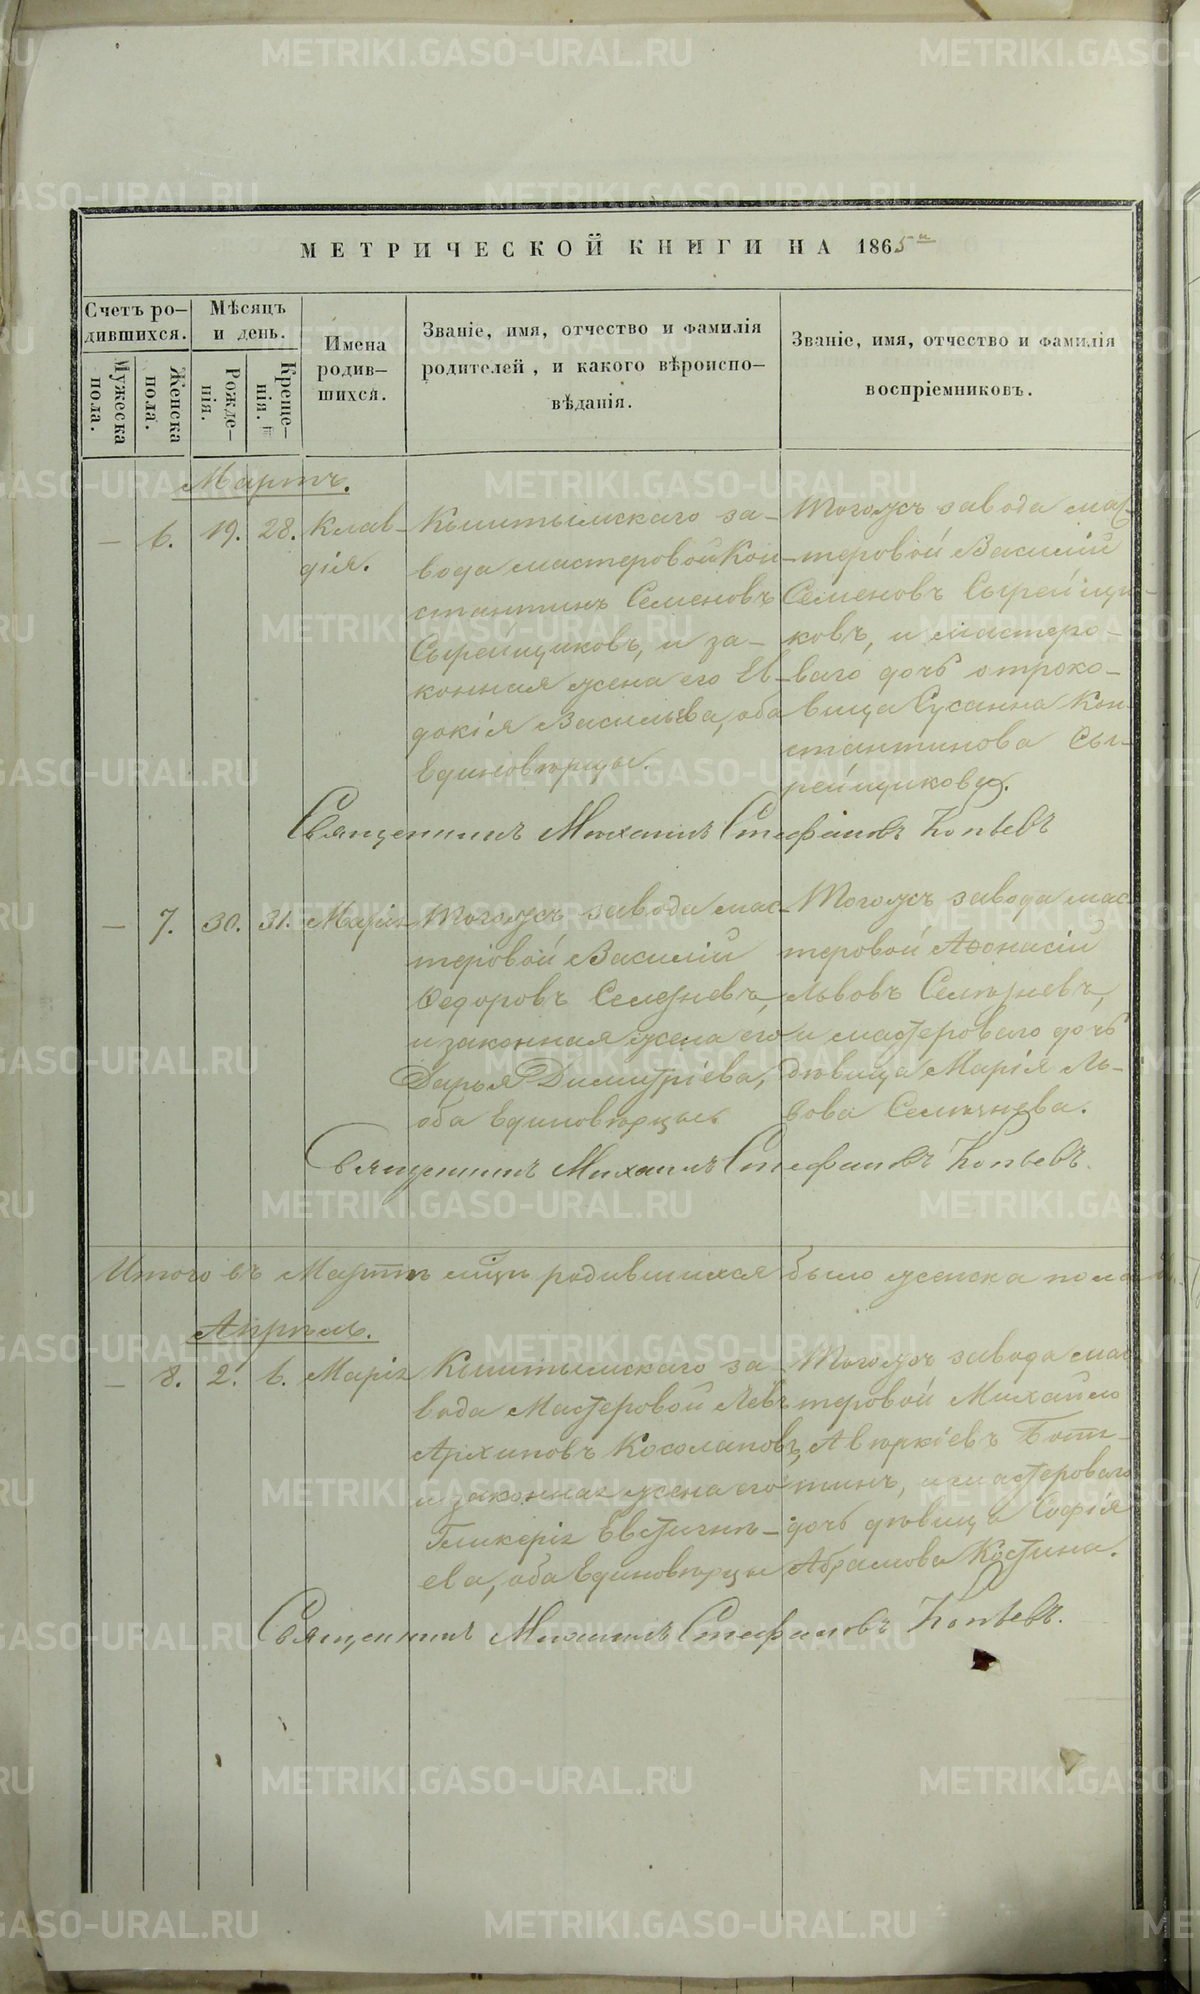 МЕТРИЧЕСКОЙ КНИГИ НА 1865й
Счетъ ро-
дившихся.
Мужеска
пола.
Женска
пола.
Мѣсяцъ
и день.
Рожде-
нія.
Креще-
нія.
Имена
родив-
шихся.
Званіе, имя, отчество и фамилія
родителей, и какого вѣроиспо-
вѣданія.
Званіе, имя, отчество и фамилія
воспріемниковъ.
Мартъ.
— 6. 19. 28. Клав-
дія.
Кыштымскаго за-
вода мастеровой Кон-
стантинъ Семеновъ
Сырейщиковъ, и за-
конная жена его Ев-
докія Васильева, оба
Единовѣрцы.
Тогожъ завода мас-
теровой Василій
Семеновъ Сырейщи-
ковъ, и мастеро-
ваго дочь отроко-
вица Сусанна Кон-
стантинова Сы-
рейщикова.
Священникъ Михаилъ Стефановъ Копьевъ
— 7. 30. 31. Марія
Тогожъ завода мас-
теровой Василій
Ѳедоровъ Селезневъ,
и законная жена его
Дарья Димитріева,
оба Единовѣрцы.
Тогожъ завода мас-
теровой Аѳонасій
Львовъ Селезневъ,
и мастероваго дочь
дѣвица Марія Ль-
вова Селезнева.
Священникъ Михаилъ Стефановъ Копьевъ.
Итого въ Мартѣ мцѣ родившихся было женска пола
Апрѣль.
— 8. 2. 6. Марія
Кыштымскаго за
вода Мастеровой Левъ
Архиповъ Косолаповъ,
и законная жена его
Гликерія Евстигнѣ-
ева, оба Единовѣрцы
Тогожъ завода мас
теровой Михайло
Авѣркіевъ Бот-
тинъ, и мастероваго
дочь дѣвица Софія
Абрамова Костина.
Священникъ Михаилъ Стефановъ Копьевъ.
METRIKI.GASO-URAL.RU